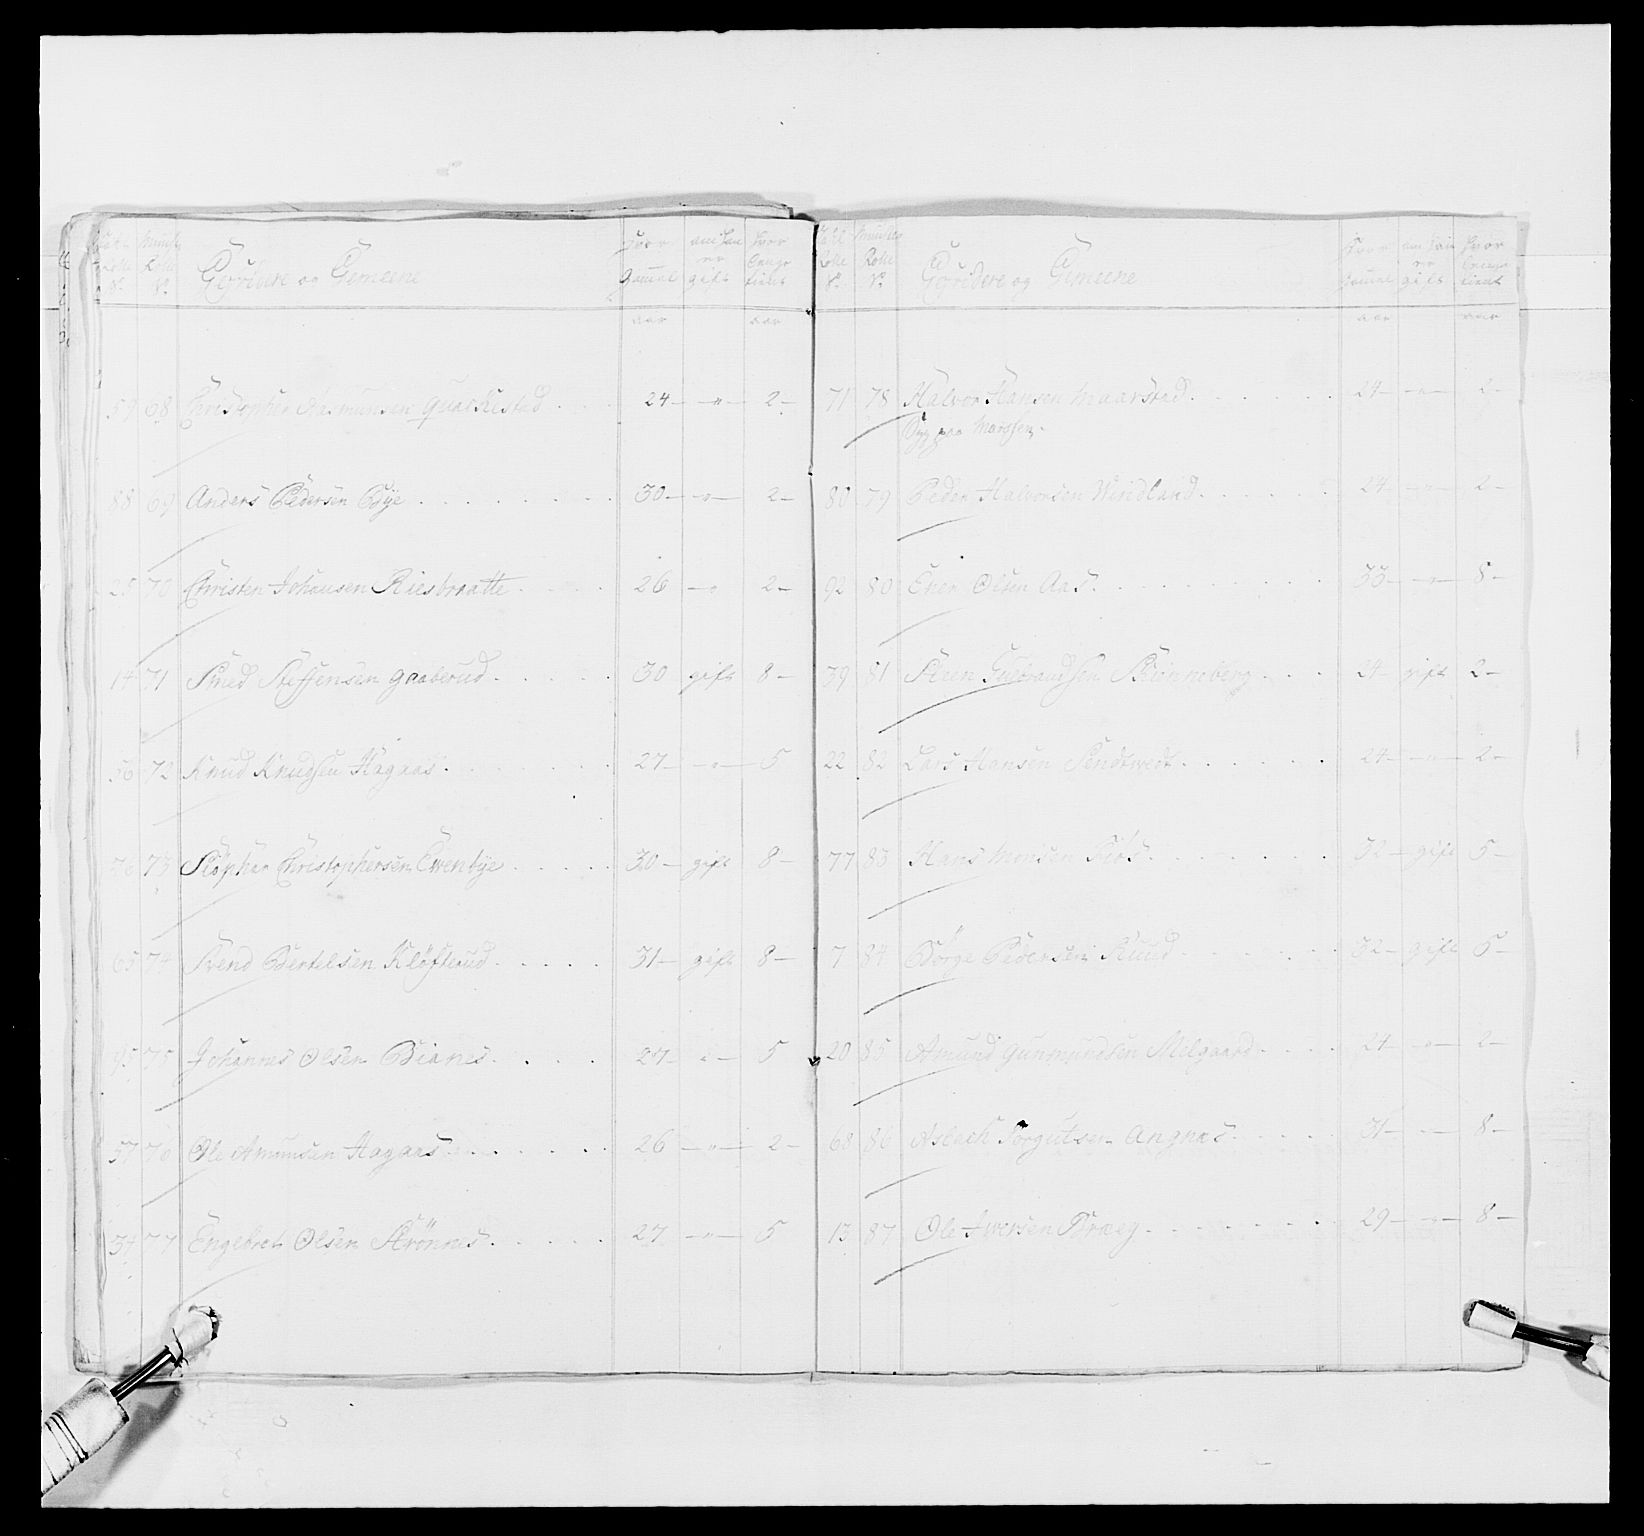 Rolle Rolle Gefridere og Gemeene Gammel gift tient
No. No.
aar aar
59 68 Christopher Rasmunsen Quaskestad 24 — " — 2 —
88 69 Anders Pedersen Bye 30 — " — 2 —
25 70 Christen Johansen Riesbraatte 26 — " 2 —
14 71 Smed Steffensen Gaaberud 30 gift 8 —
56 72 Knud Knudsen Hagaas 27 — " — 5
76 73 Stopher Christophersen Ewenbye 30 — gift 8 —
65 74 Svend Bertelsen Kløfterud 31 — gift 8 —
45 75 Johannes Olsen Bianes 27 — " — 5
57 76 Ole Amunsen Hagaas 26 — " — 2 —
34 77 Engebret Olsen Strønnes 27 — " — 5
Rolle Rolle Gefridere og Gemeene Gammel gift tient
No. No.
aar aar
71 78 Halvor Hansen Maarstad 24 — " — 2 —
Syg paa Marssen.
80 79 Peder Halvorsen Windland 24 — " — 2 —
92 80 Even Olsen Aas 33 — " — 8 —
39 81 Steen Gulbrandsen Skinneberg 24 — gift 2 —
22 82 Lars Hansen Sendtwedt 24 — " — 2 —
77 83 Hans Monsen Fiøs 32 — gift 5 —
7 84 Børge Pedersen Ruud 32 — gift 5 —
20 85 Amund Gunmundsen Milgaard 24 — " — 2 —
68 86 Asbach Torgutsen Angnas 31 — — 8 —
13 87 Ole Iversen Præg 29 — " — 8 —